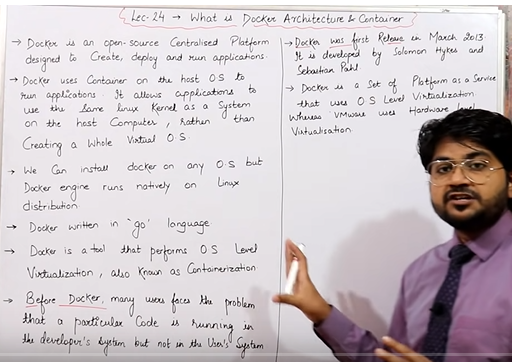 Lec-24 → What is Docker Architecture & Container
→ Docker is an open-source Centralised Platform
designed to Create, deploy and run applications.
→ Docker uses Container on the host O.S to
run applications. It allows applications to
use the same linux Kernel as a System
on the host Computer, rather than
Creating a whole Virtual O.S.
→ We Can install docker on any O.S but
Docker engine runs natively on Linux
distribution.
→ Docker written in 'go' language.
→ Docker is a tool that performs O.S Level
Virtualization, also known as Containerization
→ Before Docker, many users faces the problem
that a particular Code is running in
the developer's System but not in the User's System
→ Docker was first Release in March 2013.
It is developed by Solomon Hykes and
Sebastian Pahl.
→ Docker is a Set of Platform as a Service
that uses O.S Level Virtualization
Whereas VMware uses Hardware Level
Virtualisation.